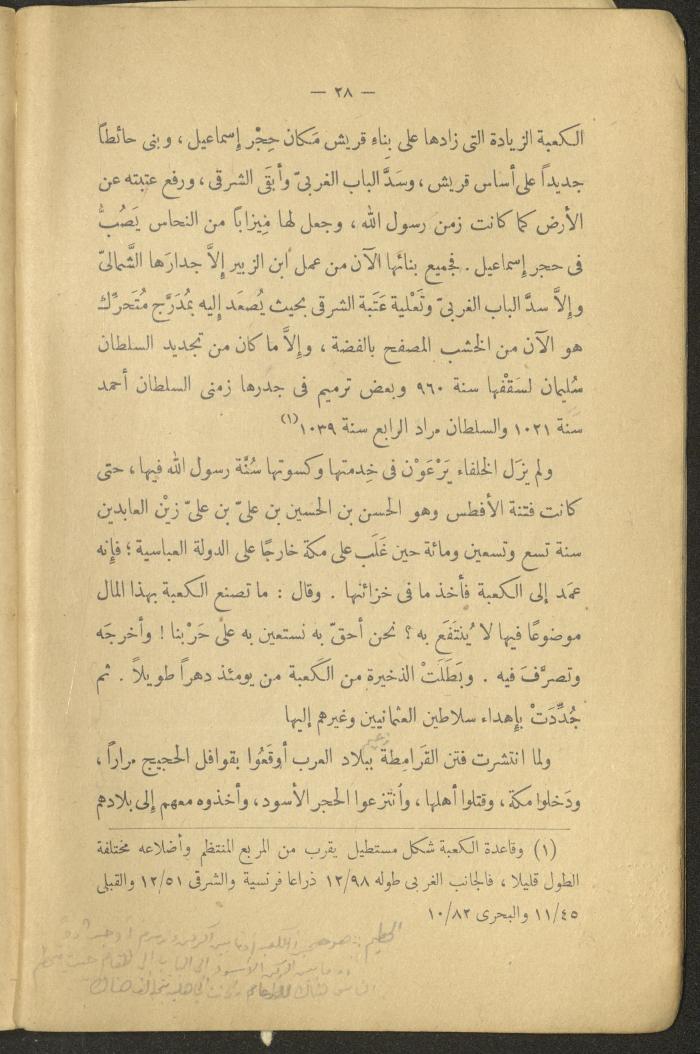 — ٢٨ —
الكعبة الزيادة التى زادها على بِناءِ قريش مَكان حِجْر إسماعيل ، وبنى حائطاً
جديداً على أساس قريش ، وسَدَّ الباب الغربىّ وأبقَى الشرقى ، ورفع عتبته عن
الأرض كما كانت زمن رسول الله ، وجعل لها مِيزاباً من النحاس يَصُبُّ
فى حجر إسماعيل . فجميع بنائها الآن من عمل ابن الزبير إلاَّ جدارَها الشَّمالىّ
وإلاَّ سدَّ الباب الغربىّ وتَعْلية عَتَبة الشرقى بحيث يُصعَد إليه بمُدَرَّج مُتَحرِّك
هو الآن من الخشب المصفح بالفضة ، وإلاَّ ما كان من تجديد السلطان
سُليمان لسَقْفها سنة ٩٦٠ وبعض ترميم فى جدرها زمنى السلطان أحمد
سَنة ١٠٢١ والسلطان مراد الرابع سنة ١٠٣٩(١)
ولم يزَل الخلفاء يَرْعَوْن فى خِدمتها وكسوتها سُنَّة رسول الله فيها ، حتى
كانت فتنة الأفطس وهو الحسن بن الحسين بن علىّ بن علىّ زيْن العابدين
سنة تسع وتسعين ومائة حين غَلَب على مكة خارجًا على الدولة العباسية ؛ فإنه
عمَد إلى الكعبة فأخذ ما فى خزائنها . وقال : ما تصنع الكعبة بهذا المال
موضوعًا فيها لا يُنتَفَع به ؟ نحن أحقّ به نستعين به على حَرْبنا ! وأخرجَه
وتصرَّفَ فيه . وبَطَلَتْ الذخيرة من الكَعبة من يومئذ دهراً طويلاً . ثم
جُدِّدَتْ بإهداء سلاطين العثمانيين وغيرهم إليها
ولما انتشرت فتن القَرامِطة ببلاد العرب أوقَعُوا بقوافل الحجيج مراراً ،
ودَخلوا مكة ، وقتلوا أهلها ، وٱنتزعوا الحجر الأسود ، وأخذوه معهم إلى بلادهم
(١) وقاعدة الكعبة شكل مستطيل يقرب من المربع المنتظم وأضلاعه مختلفة
الطول قليلا ، فالجانب الغربى طوله ١٢/٩٨ ذراعا فرنسية والشرقى ١٢/٥١ والقبلى
١١/٤٥ والبحرى ١٠/٨٢
الحطيم :